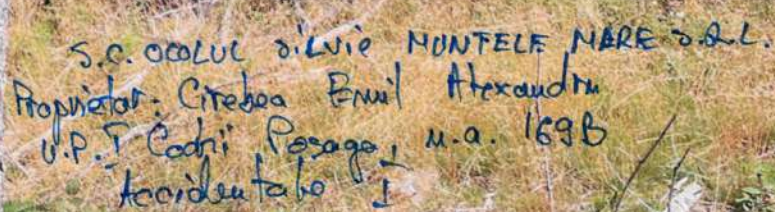 S.C. OCOLUL SILVIC MUNTELE MARE S.R.L.
Proprietar: Cirebea Emil Alexandru
U.P. I Codrii Posaga, u.a. 169B
Accidentale I